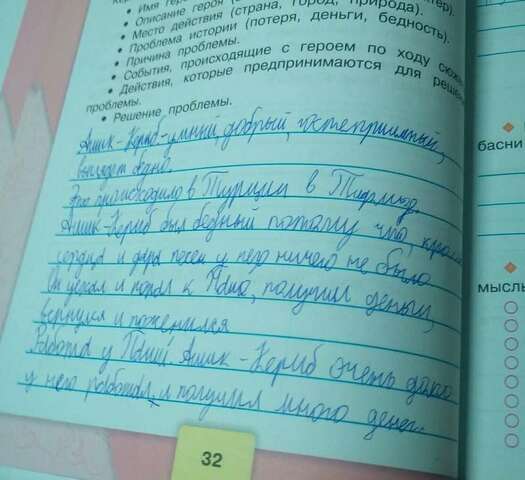 • Имя геро
• Описание героя (
• Место действия (страна, город, природа).
• Проблема истории (потеря, деньги, бедность).
• Причина проблемы.
• События, происходящие с героем по ходу сюже
• Действия, которые предпринимаются для реше
проблемы.
• Решение проблемы.
Ашик-Кериб-умный, добрый, гостеприимный,
выглядет
Это происходило в Турции в
Ашик-Кериб был бедный потому что, кроме
сердца и дара песен у него ничего не было
Он уехал и попал к Паша, получил деньги,
вернулся и поженился
Работа у Паши, Ашик-Кериб очень
у него работал, и получил много денег.
32
басни
мысль